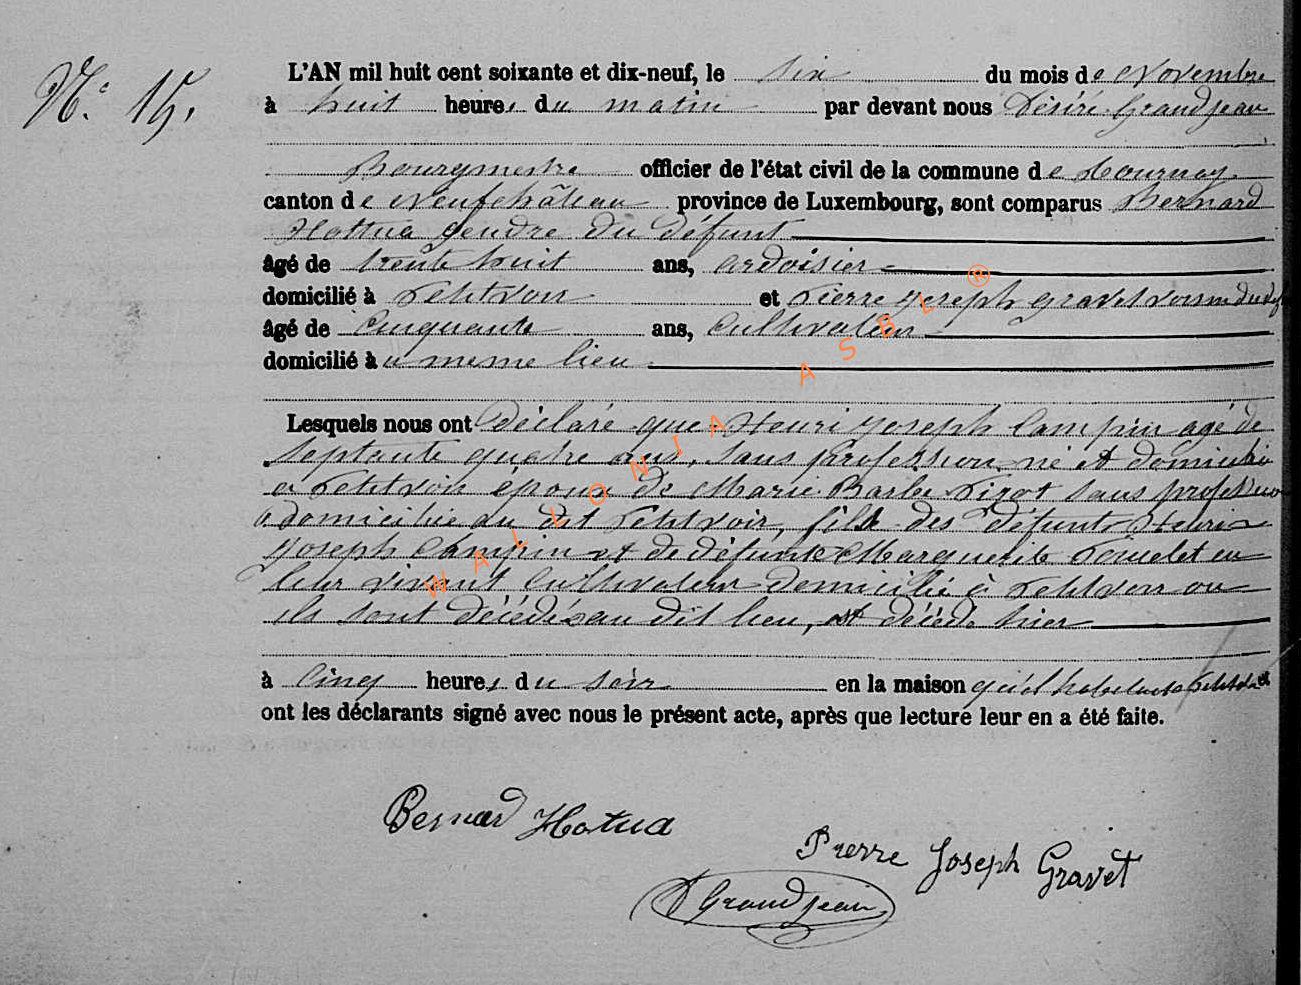 N° 15.
L'AN mil huit cent soixante et dix-neuf, le six du mois de Novembre
à huit heures du matin par devant nous Désiré Grandjean
Bourgmestre officier de l'état civil de la commune de Tournay
canton de Neufchâteau province de Luxembourg, sont comparus Bernard
Hottua gendre du défunt
âgé de trente huit ans, ardoisier
domicilié à Petitvoir et Pierre Joseph Gravet voisin du
âgé de Cinquante ans, Cultivateur
domicilié au meme lieu
Lesquels nous ont déclaré que Henri Joseph Campin agé de
septante quatre ans, sans profession né et domicilié
a Petitvoir époux de Marie Barbe Pigot sans profession
domiciliée au dit Petitvoir, fils des défunts Henri
Joseph Campin et de défunte Marguerite en
leur vivant Cultivateur domicilié à Petitvoir ou
ils sont décédés au dit lieu, est décédé hier
à Cinq heures du soir en la maison qu'il habitait a Petitvoir et
ont les déclarants signé avec nous le présent acte, après que lecture leur en a été faite.
Bernard Hotua
Pierre Joseph Gravet
D Grandjean
WALLONIA ASBL ®